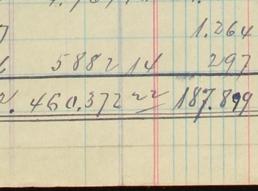 1.264
5882 14 297
460.372 22 187.899